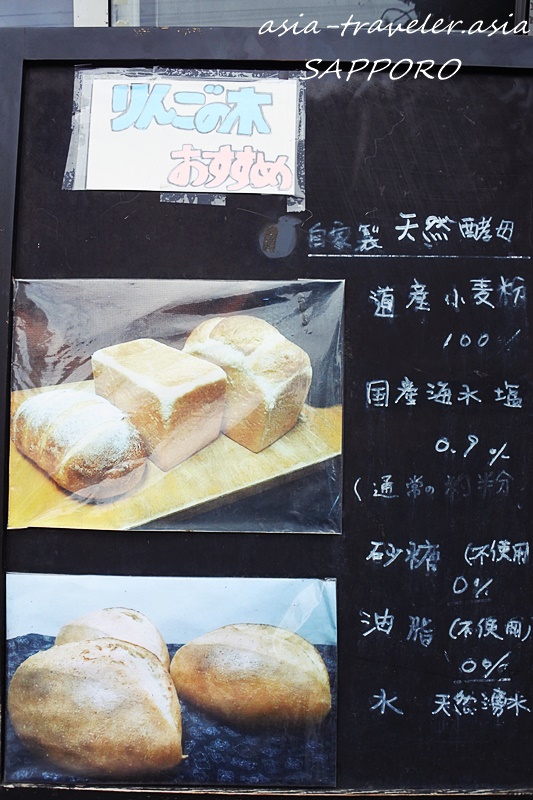 asia-traveler.asia
SAPPORO
りんごの木
おすすめ
自家製 天然酵母
道産小麦粉
100%
国産海水塩
0.9%
(通常の約半分
砂糖 (不使用
0%
油脂 (不使用)
0%
水 天然湧水